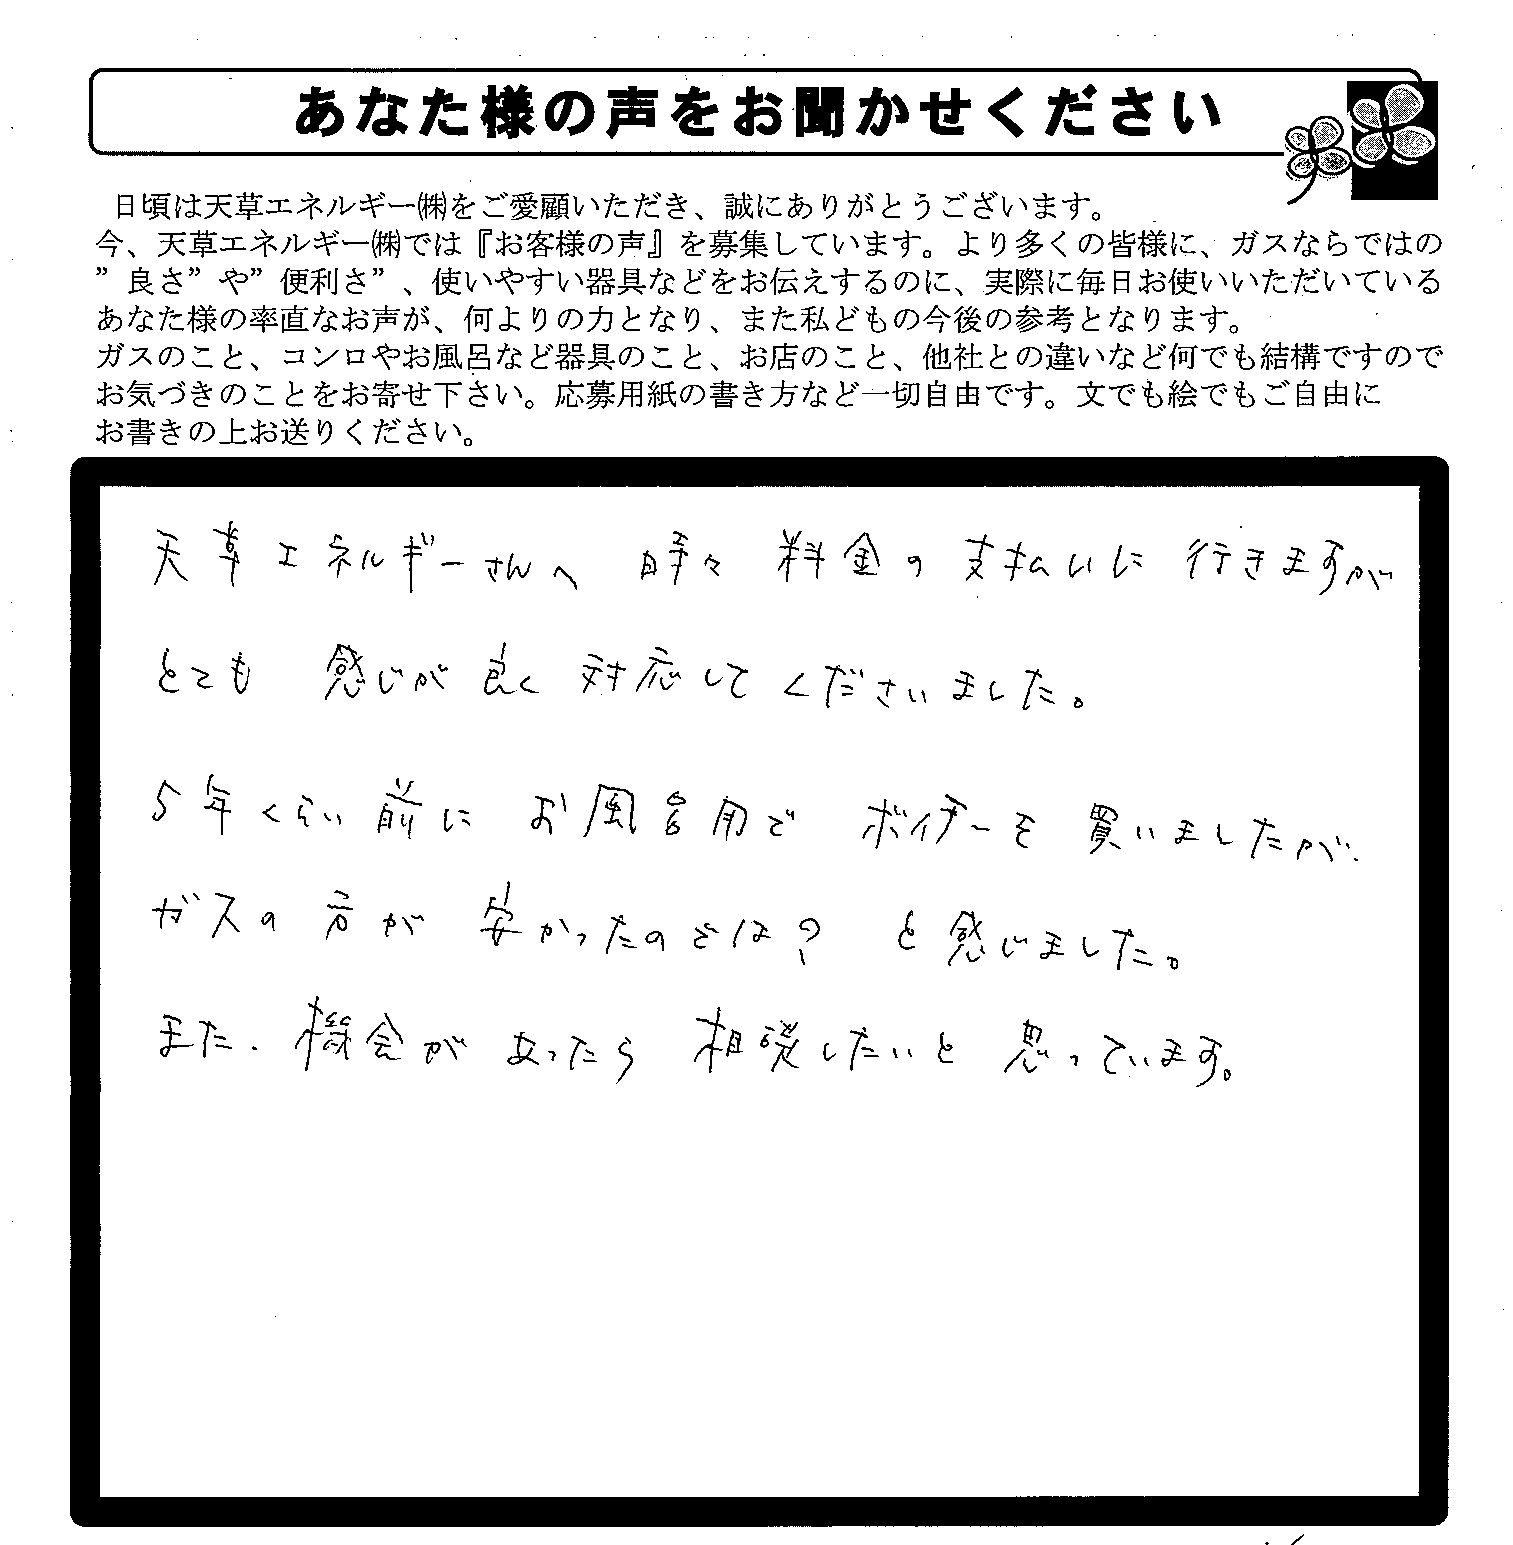 あなた様の声をお聞かせください
日頃は天草エネルギー㈱をご愛顧いただき、誠にありがとうございます。
今、天草エネルギー㈱では『お客様の声』を募集しています。より多くの皆様に、ガスならではの
”良さ”や”便利さ”、使いやすい器具などをお伝えするのに、実際に毎日お使いいただいている
あなた様の率直なお声が、何よりの力となり、また私どもの今後の参考となります。
ガスのこと、コンロやお風呂など器具のこと、お店のこと、他社との違いなど何でも結構ですので
お気づきのことをお寄せ下さい。応募用紙の書き方など一切自由です。文でも絵でもご自由に
お書きの上お送りください。
天草エネルギーさんへ 時々 料金の支払いに行きますが
とても 感じが良く対応してくださいました。
5年くらい前に お風呂用で ボイラーを 買いましたが、
ガスの方が 安かったのでは? と感じました。
また、機会が あったら 相談したいと 思っています。